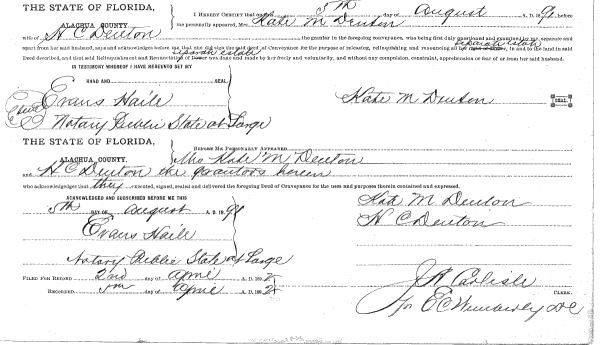 THE STATE OF FLORIDA,
ALACHUA COUNTY.
I HEREBY CERTIFY that on 5th day of August A. D. 9 before
me personally appeared, Mrs. Kate M Denton
wife of H C Denton the grantor in the foregoing conveyance, who being first duly questioned and examined by me separate and
apart from her said husband, says and acknowledges before me that she did sign the said deed of Conveyance for the purpose of releasing, relinquishing and renouncing all her separate estate in and to the land in said
Deed described, and that said Relinquishment and Renunciation of separate estate was done and made by her freely and voluntarily, and without any compulsion, constraint, apprehension or fear of or from her said husband.
IN TESTIMONY WHEREOF I HAVE HEREUNTO SET MY
HAND AND SEAL.
Evans Haile
Kate M Denton SEAL.
Notary Public State at Large
THE STATE OF FLORIDA,
ALACHUA COUNTY.
BEFORE ME PERSONALLY APPEARED
Mrs Kate M Denton
and H C Denton the grantors herein
who acknowledges that they executed, signed, sealed and delivered the foregoing Deed of Conveyance for the uses and purposes therein contained and expressed.
ACKNOWLEDGED AND SUBSCRIBED BEFORE ME THIS
5th DAY OF August A. D. 189
Kate M Denton
H C Denton
Evans Haile
Notary Public State at Large
FILED FOR RECORD 2nd day of April A. D. 189
RECORDED day of April A. D. 189
J A Carlisle CLERK.
for E C Wimberly D C